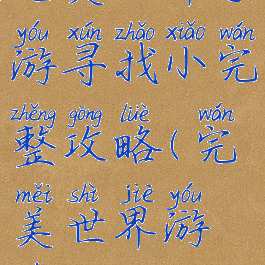 yóu xún zhǎo xiǎo wán
游寻找小完
zhěng gōng lüè wán
整攻略(完
měi shì jiè yóu
美世界游